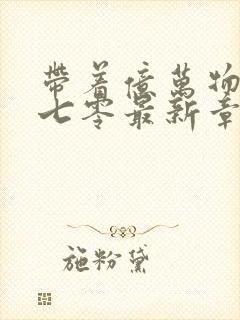 帶着億萬物
七零最新章
施粉黛